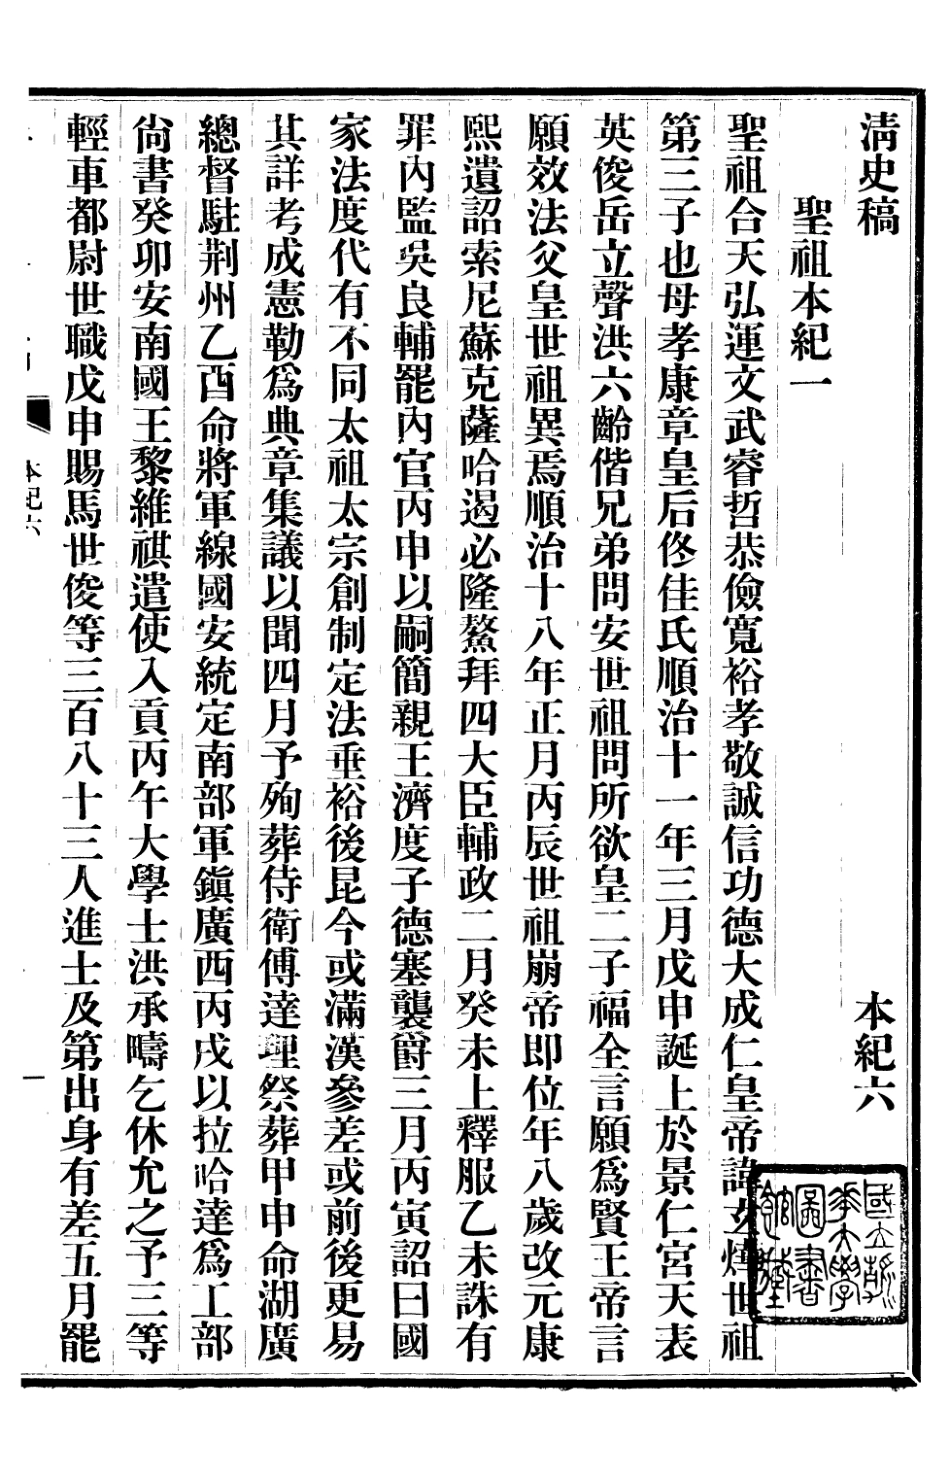 清史稿 本紀六
聖祖本紀一
聖祖合天弘運文武睿哲恭儉寬裕孝敬誠信功德大成仁皇帝諱玄燁世祖
第三子也母孝康章皇后佟佳氏順治十一年三月戊申誕上於景仁宮天表
英俊岳立聲洪六齡偕兄弟問安世祖問所欲皇二子福全言願爲賢王帝言
願效法父皇世祖異焉順治十八年正月丙辰世祖崩帝即位年八歲改元康
熙遺詔索尼蘇克薩哈遏必隆鰲拜四大臣輔政二月癸未上釋服乙未誅有
罪內監吳良輔罷內官丙申以嗣簡親王濟度子德塞襲爵三月丙寅詔曰國
家法度代有不同太祖太宗創制定法垂裕後昆今或滿漢參差或前後更易
其詳考成憲勒爲典章集議以聞四月予殉葬侍衛傅達理祭葬甲申命湖廣
總督駐荆州乙酉命將軍線國安統定南部軍鎭廣西丙戌以拉哈達爲工部
尙書癸卯安南國王黎維祺遣使入貢丙午大學士洪承疇乞休允之予三等
輕車都尉世職戊申賜馬世俊等三百八十三人進士及第出身有差五月罷
本紀六 一